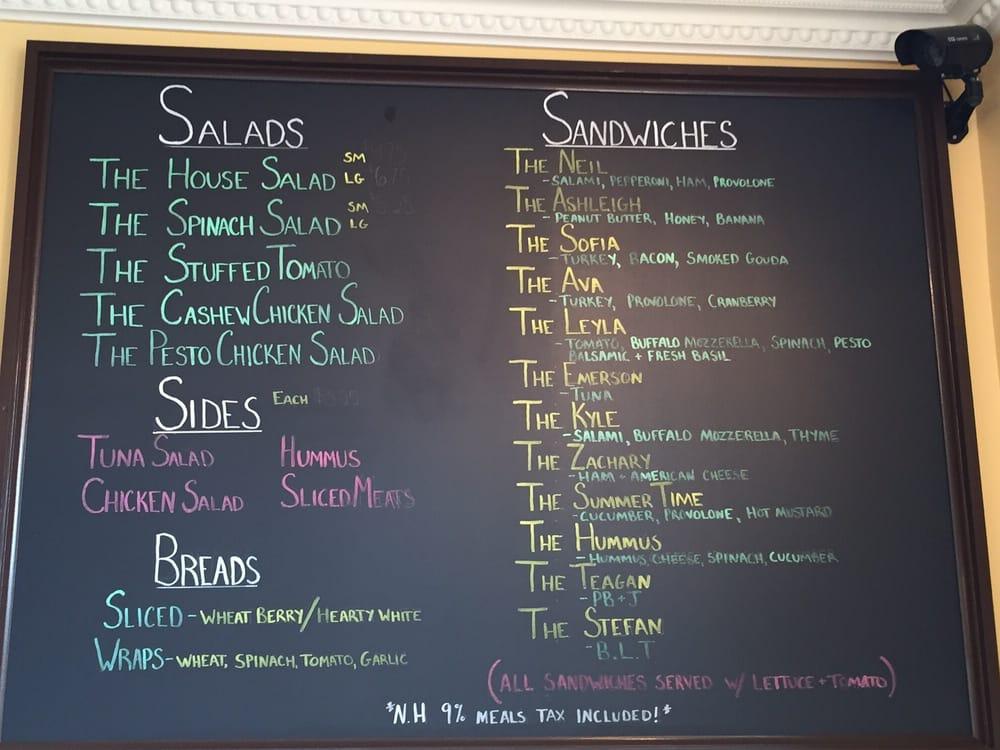 SALADS
THE HOUSE SALAD SM LG
THE SPINACH SALAD SM LG
THE STUFFED TOMATO
THE CASHEW CHICKEN SALAD
THE PESTO CHICKEN SALAD
SIDES EACH
TUNA SALAD HUMMUS
CHICKEN SALAD SLICED MEATS
BREADS
SLICED - WHEAT BERRY/HEARTY WHITE
WRAPS - WHEAT, SPINACH, TOMATO, GARLIC
SANDWICHES
THE NEIL
- SALAMI, PEPPERONI, HAM, PROVOLONE
THE ASHLEIGH
- PEANUT BUTTER, HONEY, BANANA
THE SOFIA
- TURKEY, BACON, SMOKED GOUDA
THE AVA
- TURKEY, PROVOLONE, CRANBERRY
THE LEYLA
- TOMATO, BUFFALO MOZZERELLA, SPINACH, PESTO
BALSAMIC + FRESH BASIL
THE EMERSON
- TUNA
THE KYLE
- SALAMI, BUFFALO MOZZERELLA, THYME
THE ZACHARY
- HAM + AMERICAN CHEESE
THE SUMMER TIME
- CUCUMBER, PROVOLONE, HOT MUSTARD
THE HUMMUS
- HUMMUS, CHEESE, SPINACH, CUCUMBER
THE TEAGAN
- PB + J
THE STEFAN
- B.L.T
(ALL SANDWICHES SERVED W/ LETTUCE + TOMATO)
*N.H 9% MEALS TAX INCLUDED!*